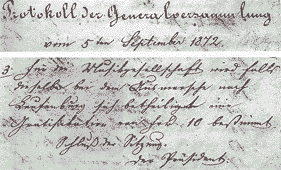 Protokoll der Generalversammlung
vom 5ten September 1872.
3. Für die Musikgesellschaft wird falls
dieselbe bei dem Ausmarsche nach
sich betheiligt eine
Gratifikation von frs. 10 bestimmt
Schluß der Sitzung.
Der Präsident: